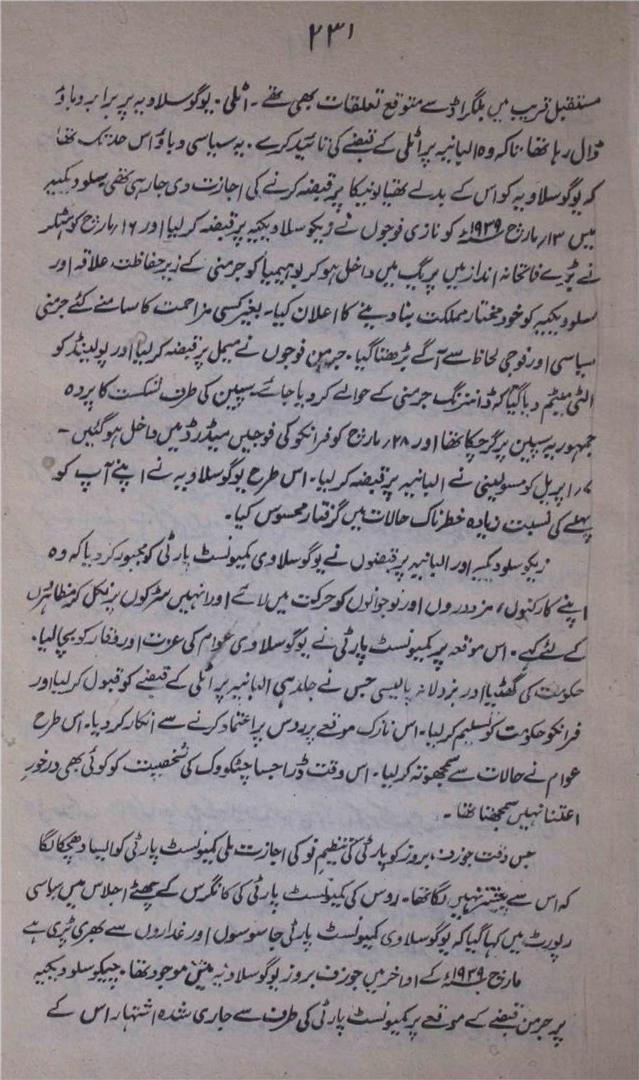 ۲۳۱
مستقبل قریب میں بلگراڈ سے متوقع تعلقات بھی تھے ۔ اٹلی ۔ یوگوسلاویہ پر برابر دباؤ
ڈال رہا تھا تاکہ وہ البانیہ پر اٹلی کے قبضے کی تائید کرے ۔ یہ سیاسی دباؤ اس حد تک تھا
کہ یوگوسلاویہ کو اس کے بدلے تھیالونیکا پر قبضہ کرنے کی اجازت دی جا رہی تھی سلودیکیہ
میں ۱۳؍ مارچ ۱۹۳۹ء کو نازی فوجوں نے زیکوسلاویکیہ پر قبضہ کر لیا اور ۱۶؍ مارچ کو ہٹلر
نے پورے فاتحانہ انداز میں پریگ میں داخل ہو کر بوہیمیا کو جرمنی کے زیر حفاظت علاقہ اور
سلودیکیہ کو خود مختار مملکت بنا دینے کا اعلان کیا۔ بغیر کسی مزاحمت کا سامنے کئے جرمنی
سیاسی اور فوجی لحاظ سے آگے بڑھتا گیا۔ جرمن فوجوں نے میمل پر قبضہ کر لیا اور پولینڈ کو
الٹی میٹم دیا گیا کہ ڈانزنگ جرمنی کے حوالے کر دیا جائے۔ سپین کی طرف شکست کا پردہ
جمہوریہ سپین پر گر چکا تھا اور ۲۸؍ مارچ کو فرانکو کی فوجیں میڈرڈ میں داخل ہو گئیں ۔
۷؍ اپریل کو مسولینی نے البانیہ پر قبضہ کر لیا۔ اس طرح یوگوسلاویہ نے اپنے آپ کو
پہلے کی نسبت زیادہ خطرناک حالات میں گرفتار محسوس کیا۔
زیکوسلودیکیہ اور البانیہ پر قبضوں نے یوگوسلاوی کمیونسٹ پارٹی کو مجبور کر دیا کہ وہ
اپنے کارکنوں، مزدوروں اور نوجوانوں کو حرکت میں لائے اور انہیں سڑکوں پر نکل کر مظاہروں
کے لئے کہے ۔ اس موقعہ پر کمیونسٹ پارٹی نے یوگوسلاوی عوام کی عزت اور وقار کو بچا لیا۔
حکومت کی گھٹیا اور بزدلانہ پالیسی جس نے جلد ہی البانیہ پر اٹلی کے قبضے کو قبول کر لیا اور
فرانکو حکومت کو تسلیم کر لیا۔ اس نازک موقعے پر روس پر اعتماد کرنے سے انکار کر دیا۔ اس طرح
عوام نے حالات سے سمجھوتہ کر لیا۔ اس وقت ڈراجسا چٹکووک کی شخصیت کو کوئی بھی درخورِ
اعتنا نہیں سمجھتا تھا ۔
جس وقت جوزف بروز کو پارٹی کی تنظیمِ نو کی اجازت ملی کمیونسٹ پارٹی کو ایسا دھچکا لگا
کہ اس سے پیشتر نہیں لگا تھا۔ روس کی کمیونسٹ پارٹی کی کانگرس کے چھٹے اجلاس میں سیاسی
رپورٹ میں کہا گیا کہ یوگوسلاوی کمیونسٹ پارٹی جاسوسوں اور غداروں سے بھری پڑی ہے
مارچ ۱۹۳۹ء کے اواخر میں جوزف بروز یوگوسلاویہ میں موجود تھا ۔ چیکوسلودیکیہ
پر جرمن قبضے کے موقعے پر کمیونسٹ پارٹی کی طرف سے جاری شدہ اشتہار اس کے